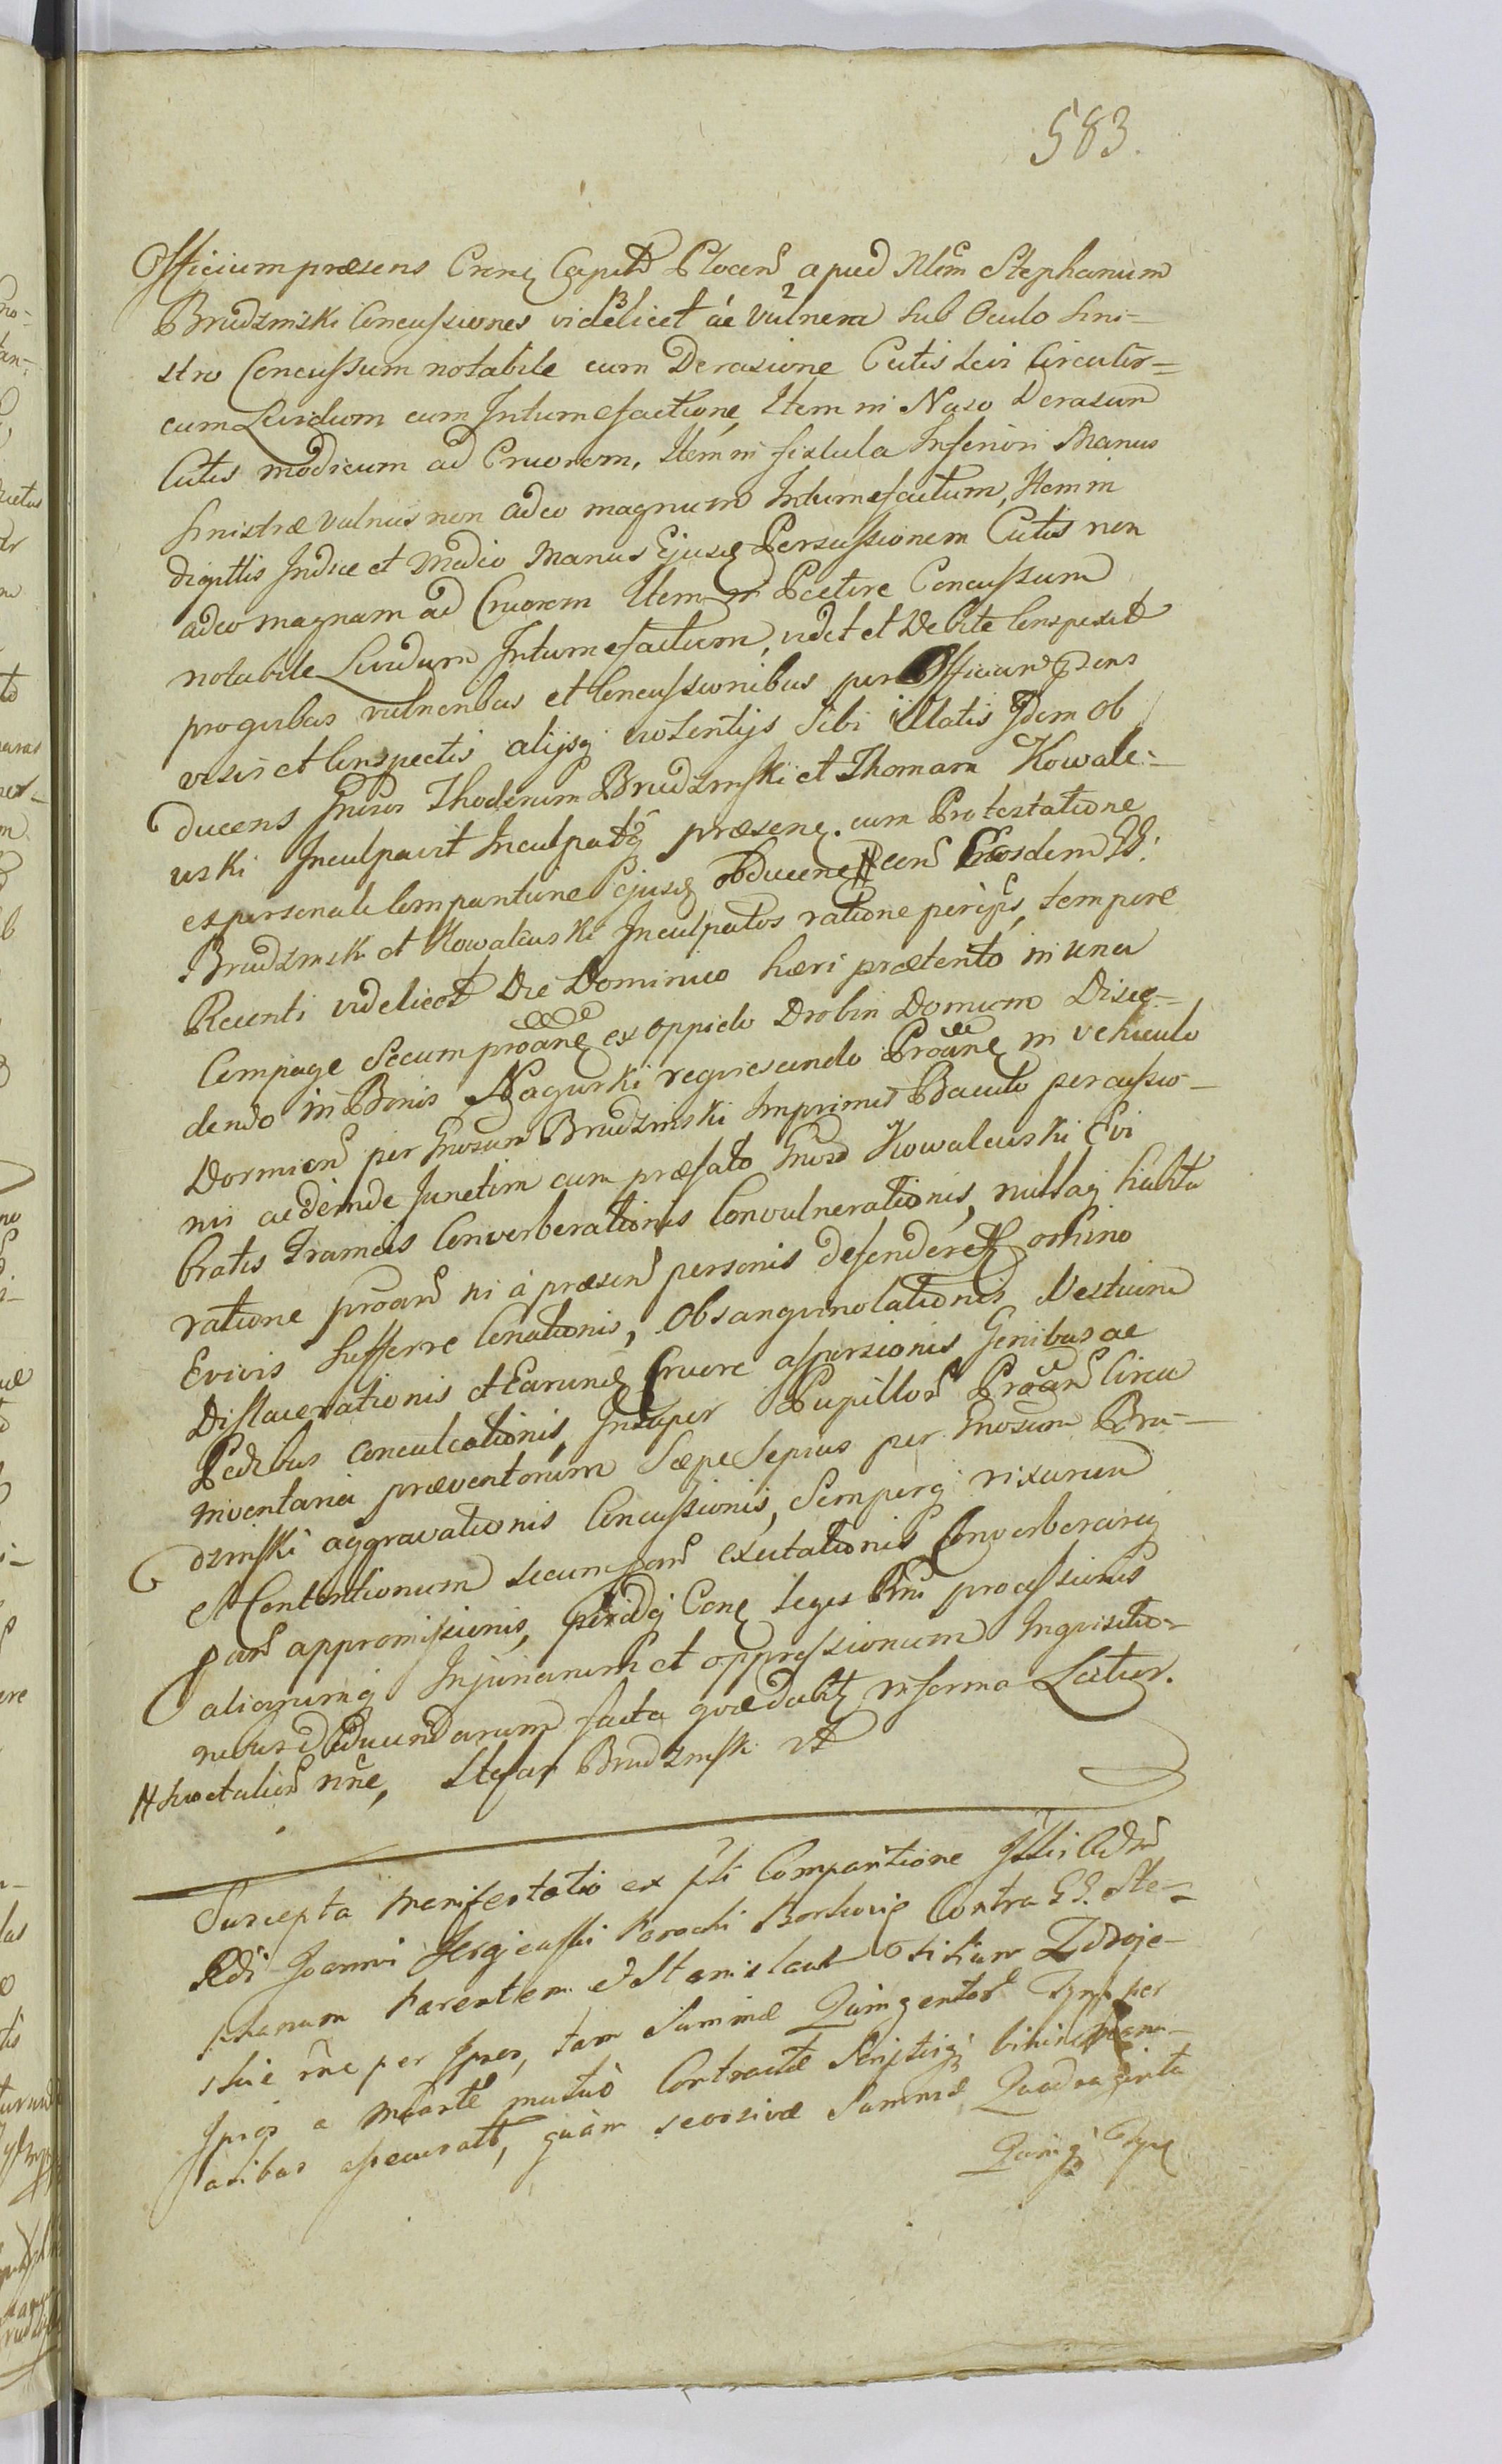 583.
Officium præsens Crene Capitle Plocen apud Nlem Stephanum
Brudzinski Concussiones videlicet ac vulnera sub Oculo sini-
stro Concussum notabile cum Derasione Cutis sevi Circulir=
cum Lividum cum Intumefactione, Item in Naso Derasum
Cutis modicum ad Cruorem, Item in fistula Inferiori Manus
sinistræ vulnus non adeo magnum Intumefactum, Item in
digittis Indice et medio Manus Ejusd Percussionem Cutis non
adeo magnam ad Cruorem Item in Pectore Concussum
notabile Lividum Intumefactum, videt et Debite Conspexit
pro quibus vulneribus et Concussionibus per Officium pdens
visis et Conspectis alijsq violentijs sibi illatis Idem Ob
ducens Gnsos Thodorum Brudzinski et Thomam Kowale=
uski Inculpavit Inculpatq præsene. cum Protestatione
ex personali Comparitione Ejusd obducene # con Eosdem GG.
Brudzinski et Kowaleuski Inculpatos ratione periþs, tempore
Recenti videlicet Die Dominico heri prætento in una
Compage Secum proane ex oppido Drobin Domum Disce-
dendo in Bonis Nagurki requiescendo Proane in vehiculo
Dormien per Gnosum Brudzinski Imprimis Baculo percussio-
nis ac deinde Junctim cum præfato Gnoso Kowaleuski Evi
bratis Frameis Converberationis Convulnerationis, nullaq habita
ratione proan ni à præsen personis defenderetq orhino
Evivis Sufferre Conationis, Obsanguinolationis Vestium
Dislacerationis et Earund Cruore aspersionis Genibus ac
Pedibus conculcationis, Insuper Pupillor Proan Circa
inventaria præventorum Sæpe Sepius per Gnosum Bru-
dzinski aggravationis Concussionis, Semperq rixarum
et Contentionum secum þan excitationis Converberariq
þan appromissionis, perindq Cone leges Rni processionis
aliarumq Injuriarum et oppressionum Inquisitio-
nibus deducendarum facta quædabitz in forma Latior.
# hoc talion nne, Stefan Brudzinski rt
Suscepta Manifestatio ex psli Comparitione Illis Adm
Rdi Joanni Jergieuski Parochi Contra GG. Ste-
phanum Parentem et Stanislaum Filium Zdroje-
skie rne per Ipsos, tam Summæ Quingentor Tynf per
Ipsos a Mdante mutuò Contractæ Scriptisq binis Manu-
aribus assecurat, quàm seorsivæ Summæ Quadraginta
Quinq Tynf